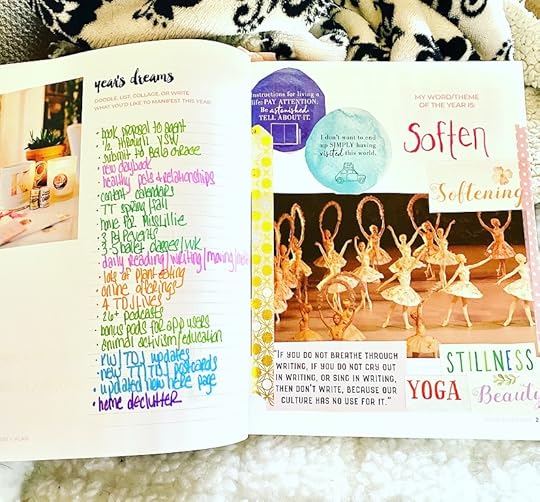 year's dreams
DOODLE, LIST, COLLAGE, OR WRITE
WHAT YOU'D LIKE TO MANIFEST THIS YEAR
• book proposal to agent
• 1/2 through YSW
• submit to
• new daybook
• healthy pets & relationships
• content calendars
• TT spring/fall
• home for MissLillie
• 2 Pd events
• 3-5 ballet classes/wk
• daily reading/writing/moving/
• lots of plant eating
• online offerings
• 4 TDJ Lives
• 26+ podcasts
• bonus pods for app users
• animal activism/education
• RW/TDJ updates
• new TT/TDJ postcards
• updated new here page
• home declutter
instructions for living a
life: PAY ATTENTION.
Be astonished.
TELL ABOUT IT.
I don't want to end
up SIMPLY having
visited this world.
MY WORD/THEME
OF THE YEAR IS:
Soften
Softening
"IF YOU DO NOT BREATHE THROUGH
WRITING, IF YOU DO NOT CRY OUT
IN WRITING, OR SING IN WRITING,
THEN DON'T WRITE, BECAUSE OUR
CULTURE HAS NO USE FOR IT."
STILLNESS
YOGA
Beauty